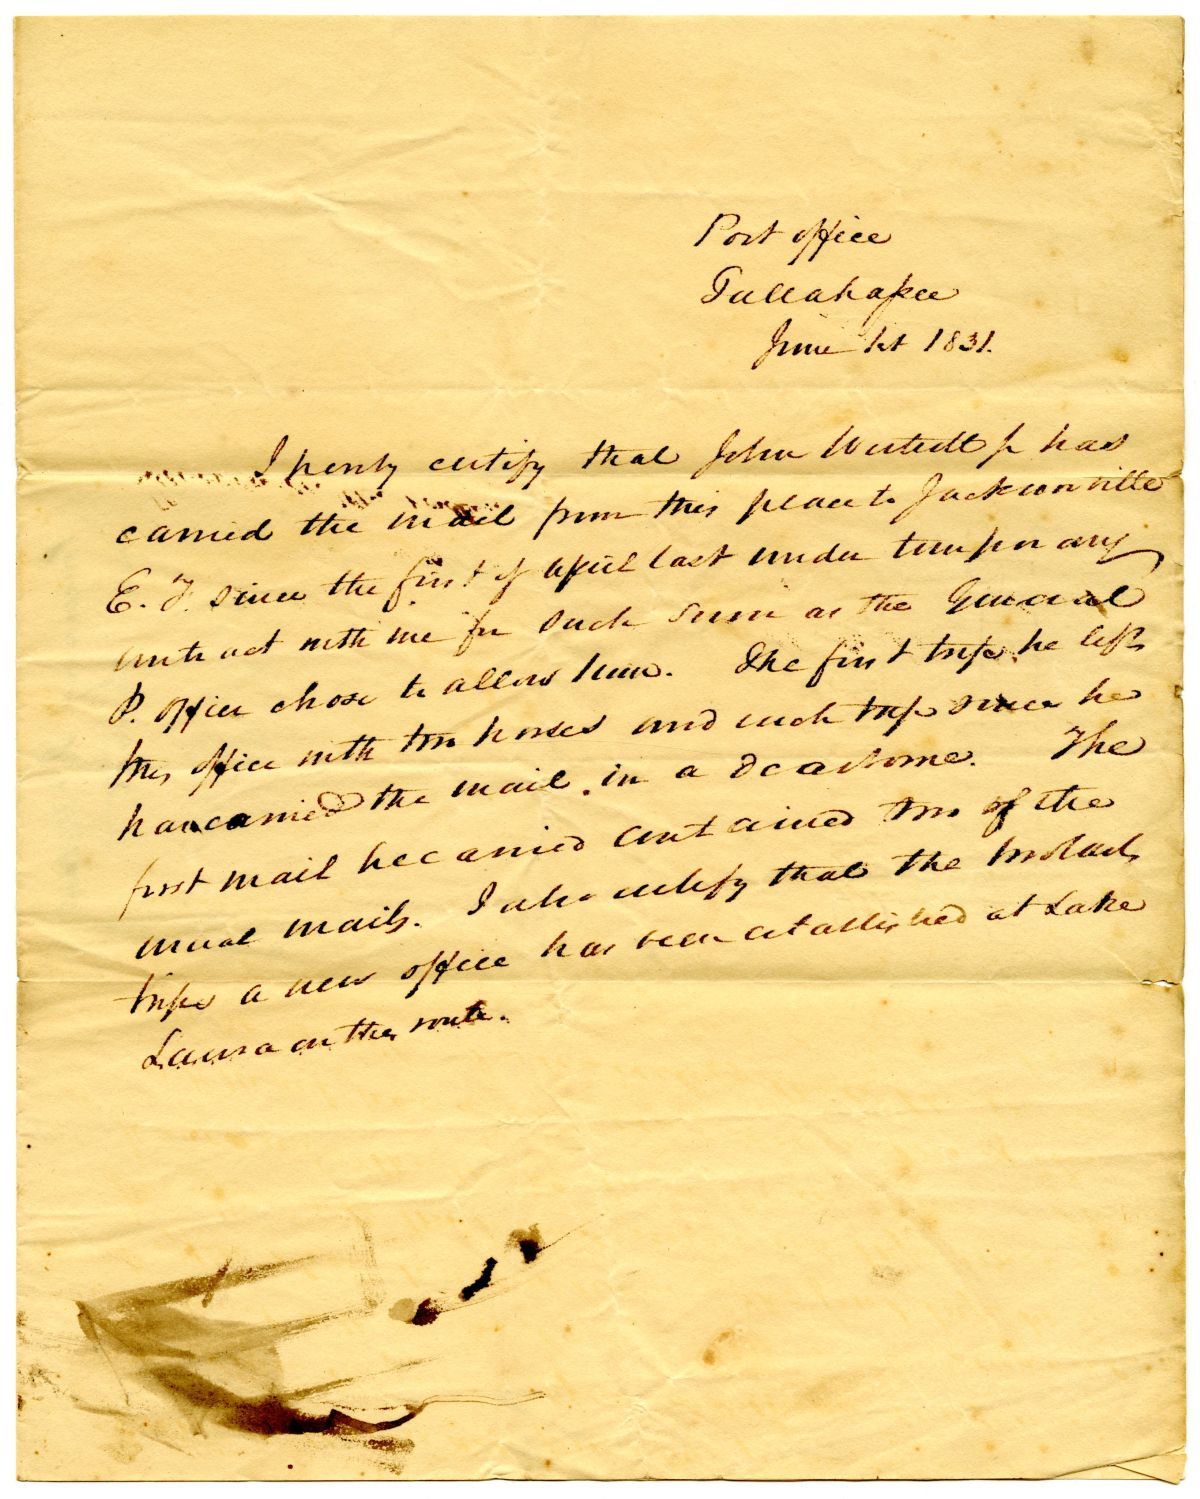 Post office
Tallahassee
June 1st 1831.
I hereby certify that John Westcott Jr has
carried the mail from this place to Jacksonville
E. F. since the first of April last under temporary
contract with me for such sum as the General
P. office chose to allow him. The first trip he left
this office with two horses and each trip since he
has carried the mail in a dearborne. The
first mail he carried contained two of the
usual mails. I also certify that the two last
trips a new office has been established at Lake
Laura on this route.